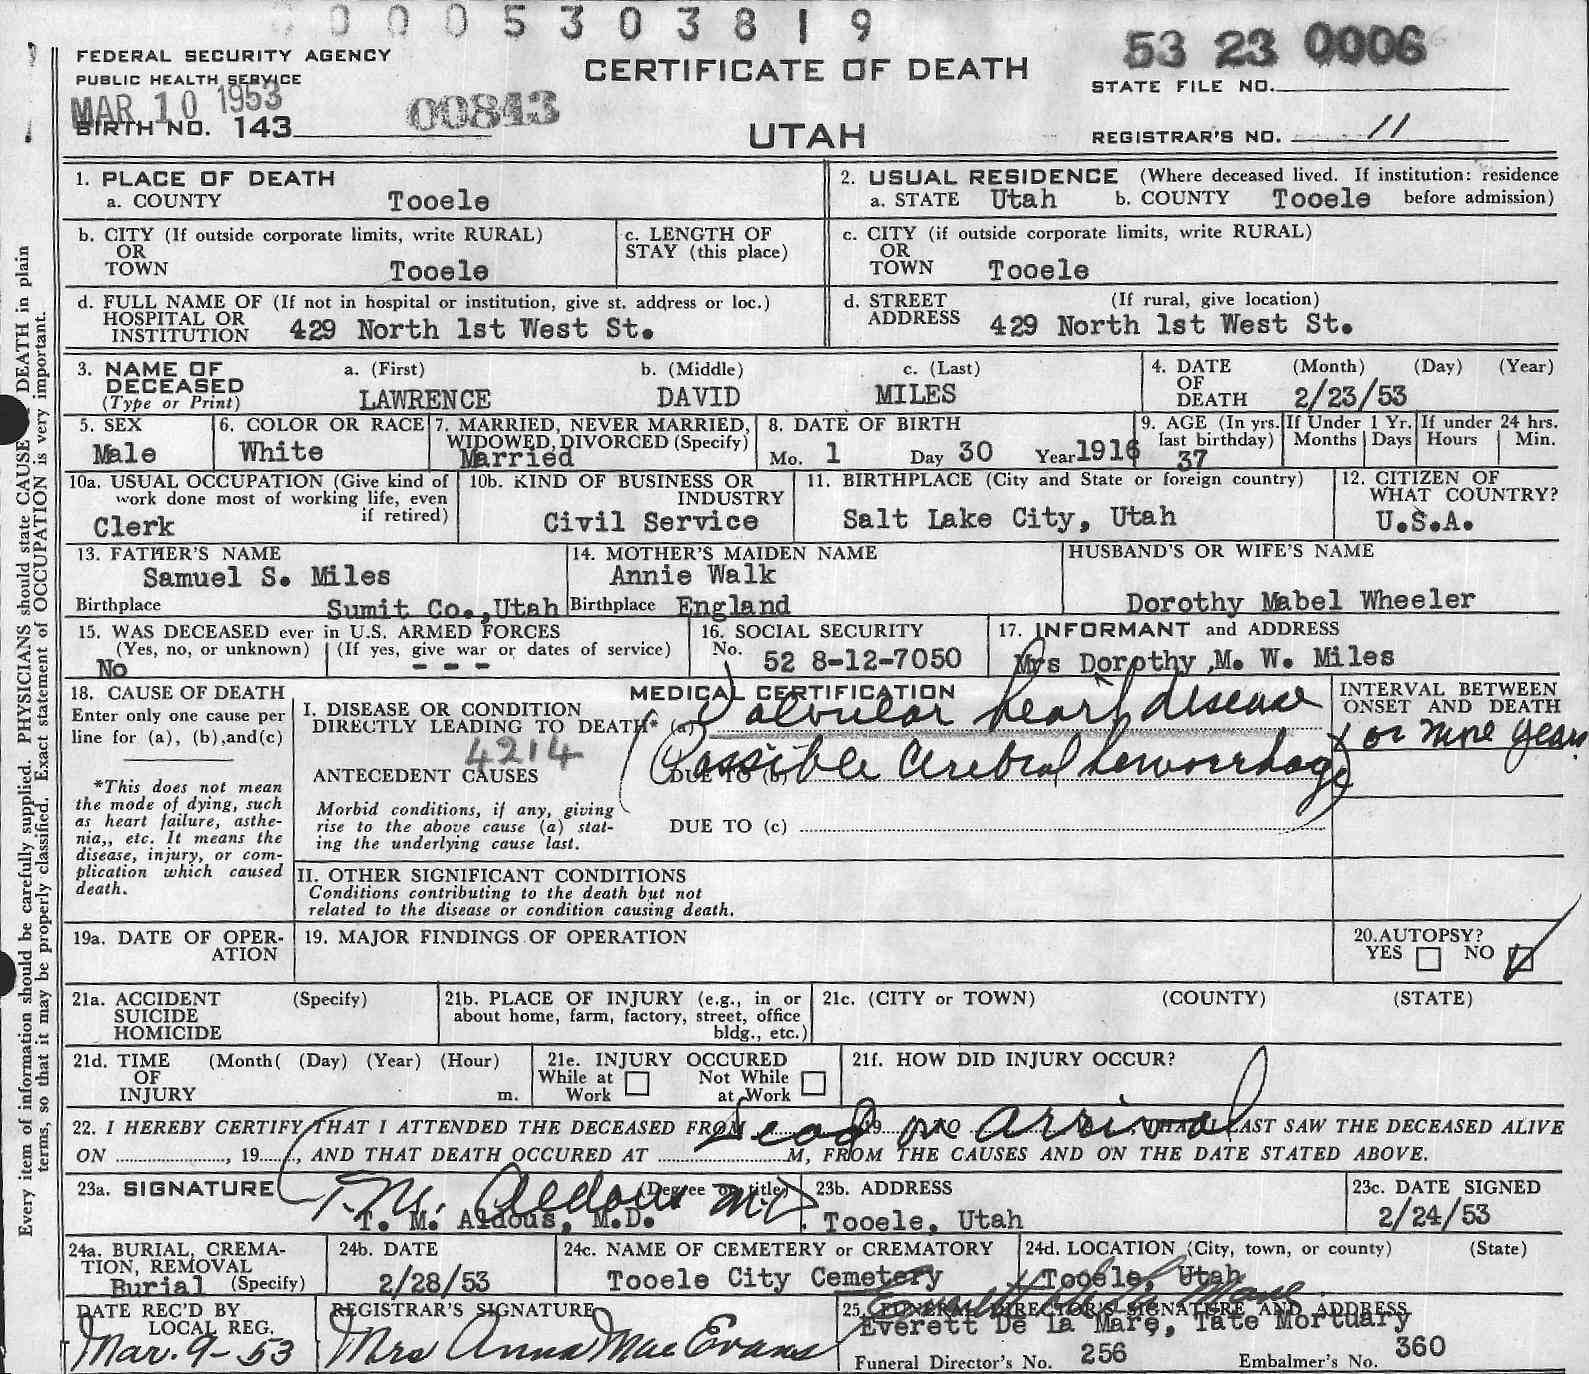 0005303819
FEDERAL SECURITY AGENCY
PUBLIC HEALTH SERVICE
MAR 10 1953
BIRTH NO. 143
00843
CERTIFICATE OF DEATH
UTAH
53 23 0006
STATE FILE NO.
REGISTRAR'S NO. 11
Every item of information should be carefully supplied. PHYSICIANS should state CAUSE DEATH in plain
terms, so that it may be properly classified. Exact statement of OCCUPATION is very important.
1. PLACE OF DEATH
a. COUNTY Tooele
2. USUAL RESIDENCE (Where deceased lived. If institution: residence
a. STATE Utah b. COUNTY Tooele before admission)
b. CITY (If outside corporate limits, write RURAL)
OR
TOWN Tooele
c. LENGTH OF
STAY (this place)
c. CITY (if outside corporate limits, write RURAL)
OR
TOWN Tooele
d. FULL NAME OF (If not in hospital or institution, give st. address or loc.)
HOSPITAL OR
INSTITUTION 429 North 1st West St.
d. STREET (If rural, give location)
ADDRESS 429 North 1st West St.
3. NAME OF
DECEASED
(Type or Print)
a. (First) b. (Middle) c. (Last)
LAWRENCE DAVID MILES
4. DATE (Month) (Day) (Year)
OF
DEATH 2/23/53
5. SEX
Male
6. COLOR OR RACE
White
7. MARRIED, NEVER MARRIED,
WIDOWED, DIVORCED (Specify)
Married
8. DATE OF BIRTH
Mo. 1 Day 30 Year 1916
9. AGE (In yrs.
last birthday)
37
If Under 1 Yr.
Months Days
If under 24 hrs.
Hours Min.
10a. USUAL OCCUPATION (Give kind of
work done most of working life, even
if retired)
Clerk
10b. KIND OF BUSINESS OR
INDUSTRY
Civil Service
11. BIRTHPLACE (City and State or foreign country)
Salt Lake City, Utah
12. CITIZEN OF
WHAT COUNTRY?
U.S.A.
13. FATHER'S NAME
Samuel S. Miles
Birthplace Sumit Co., Utah
14. MOTHER'S MAIDEN NAME
Annie Walk
Birthplace England
HUSBAND'S OR WIFE'S NAME
Dorothy Mabel Wheeler
15. WAS DECEASED ever in U.S. ARMED FORCES
(Yes, no, or unknown) (If yes, give war or dates of service)
No - - -
16. SOCIAL SECURITY
No. 52 8-12-7050
17. INFORMANT and ADDRESS
Mrs Dorothy M. W. Miles
18. CAUSE OF DEATH
Enter only one cause per
line for (a), (b),and(c)
*This does not mean
the mode of dying, such
as heart failure, asthe-
nia,, etc. It means the
disease, injury, or com-
plication which caused
death.
MEDICAL CERTIFICATION
I. DISEASE OR CONDITION
DIRECTLY LEADING TO DEATH* (a) Valvular heart disease
4214
ANTECEDENT CAUSES
DUE TO (b) Possible Cerebral hemorrhage
Morbid conditions, if any, giving
rise to the above cause (a) stat-
ing the underlying cause last.
DUE TO (c)
INTERVAL BETWEEN
ONSET AND DEATH
or nine years
II. OTHER SIGNIFICANT CONDITIONS
Conditions contributing to the death but not
related to the disease or condition causing death.
19a. DATE OF OPER-
ATION
19. MAJOR FINDINGS OF OPERATION
20.AUTOPSY?
YES NO
21a. ACCIDENT (Specify)
SUICIDE
HOMICIDE
21b. PLACE OF INJURY (e.g., in or
about home, farm, factory, street, office
bldg., etc.)
21c. (CITY or TOWN) (COUNTY) (STATE)
21d. TIME (Month( (Day) (Year) (Hour)
OF
INJURY m.
21e. INJURY OCCURED
While at Work Not While at Work
21f. HOW DID INJURY OCCUR?
Dead on arrival
22. I HEREBY CERTIFY THAT I ATTENDED THE DECEASED FROM 19 TO , THAT I LAST SAW THE DECEASED ALIVE
ON , 19 , AND THAT DEATH OCCURED AT M, FROM THE CAUSES AND ON THE DATE STATED ABOVE.
23a. SIGNATURE (Degree or title)
T. M. Aldous M.D.
T. M. Aldous, M.D.
23b. ADDRESS
Tooele, Utah
23c. DATE SIGNED
2/24/53
24a. BURIAL, CREMA-
TION, REMOVAL
Burial (Specify)
24b. DATE
2/28/53
24c. NAME OF CEMETERY or CREMATORY
Tooele City Cemetery
24d. LOCATION (City, town, or county) (State)
Tooele, Utah
DATE REC'D BY
LOCAL REG.
Mar. 9-53
REGISTRAR'S SIGNATURE
Mrs Anna Mae Evans
Everett De La Mare
25. FUNERAL DIRECTOR'S SIGNATURE AND ADDRESS
Everett De La Mare, Tate Mortuary
Funeral Director's No. 256 Embalmer's No. 360